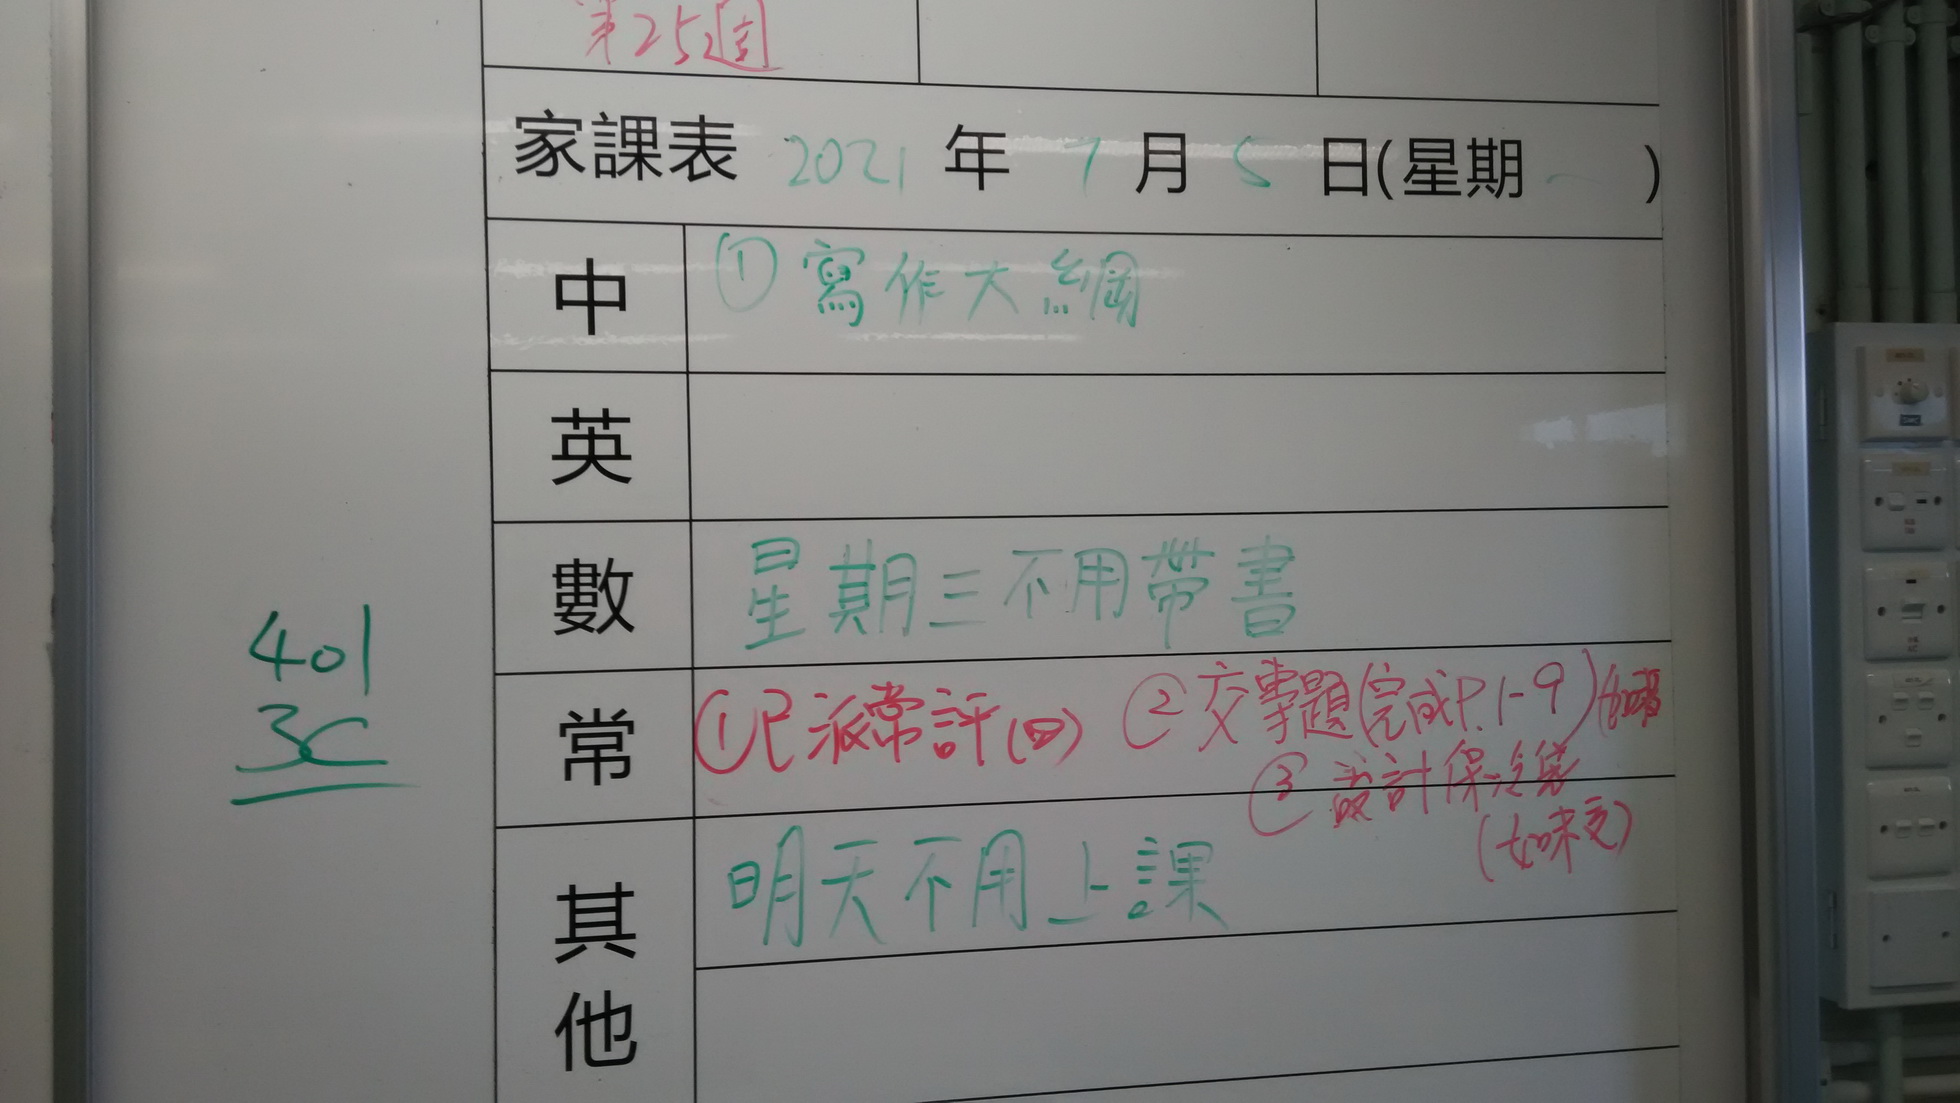 第25週
家課表 2021 年 7 月 5 日(星期 一 )
中 ① 寫作大綱
英
數 星期三不用帶書
常 ①已派常評(四) ②交專題(完成P.1-9)
③設計保冷袋
(如未交)
其他 明天不用上課
401
3C